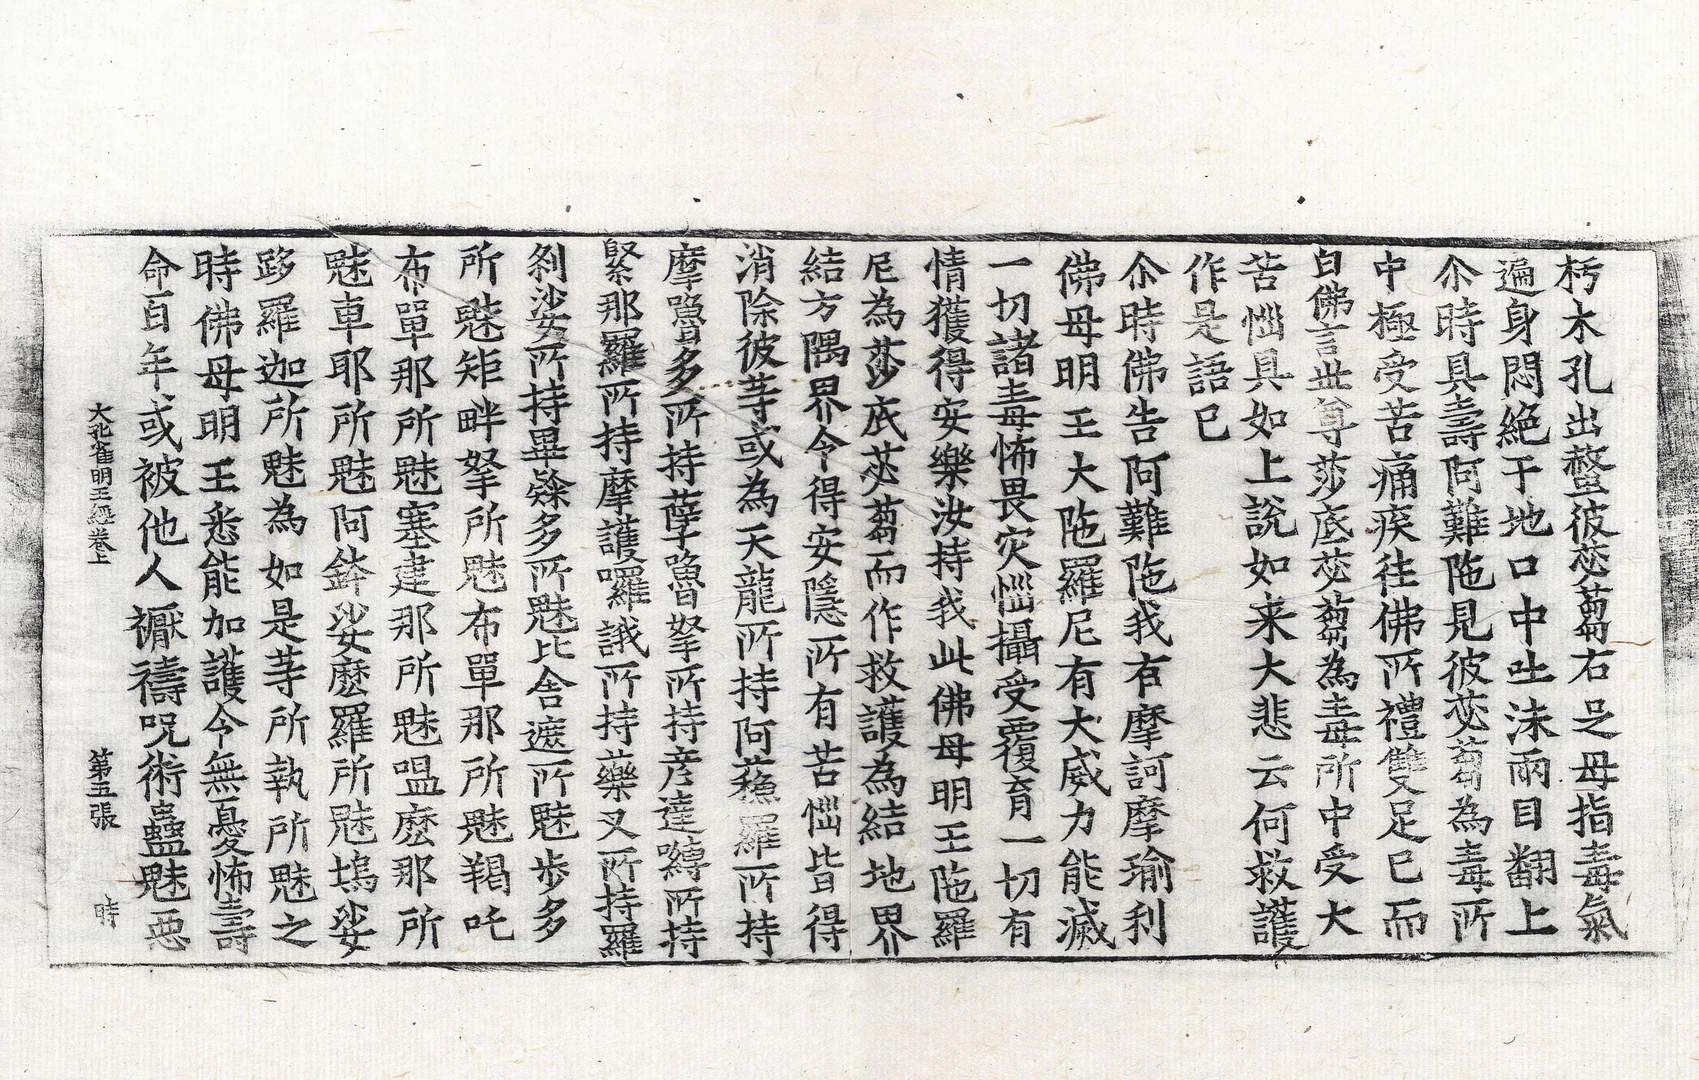 朽木孔出螫彼苾蒭右足母指毒氣
遍身悶絶于地口中吐沫兩目翻上
尒時具壽阿難陁見彼苾蒭為毒所
中極受苦痛疾往佛所禮雙足已而
白佛言世尊莎底苾蒭為毒所中受大
苦惱具如上說如来大悲云何救護
作是語已
尒時佛告阿難陁我有摩訶摩瑜利
佛母明王大陁羅尼有大威力能滅
一切諸毒怖畏灾惱攝受覆育一切有
情獲得安樂汝持我此佛母明王陁羅
尼為莎底苾蒭而作救護為結地界
結方隅界令得安隱所有苦惱皆得
消除彼䓁或為天龍所持阿蘓羅所持
摩嚕多所持孽嚕拏所持彦達嚩所持
緊那羅所持摩護囉誐所持藥叉所持羅
剎娑所持畢隸多所魅比舍遮所魅步多
所魅矩畔拏所魅布單那所魅羯吒
布單那所魅塞建那所魅嗢麽那所
魅車耶所魅阿鉢娑麽羅所魅塢娑
跢羅迦所魅為如是䓁所執所魅之
時佛母明王悉能加護令無憂怖壽
命百年或被他人禳禱呪術蠱魅惡
大孔雀明王經卷上 第五張 時